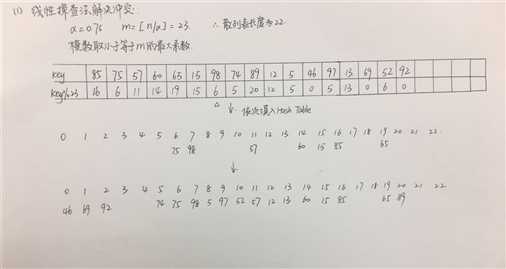 (1) 线性探查法解决冲突.
α=0.75 m=⌈n/α⌉=23. ∴散列表长度为22
模数取小于等于m的最大素数.
key 85 75 57 60 65 15 98 74 89 12 5 46 97 13 69 52 92
key%23 16 6 11 14 19 15 6 5 20 12 5 0 5 13 0 6 0
依次填入Hash Table
0 1 2 3 4 5 6 7 8 9 10 11 12 13 14 15 16 17 18 19 20 21 22
75 98 57 60 15 85 65
0 1 2 3 4 5 6 7 8 9 10 11 12 13 14 15 16 17 18 19 20 21 22
46 69 92 74 75 98 5 97 52 57 12 13 60 15 85 65 89